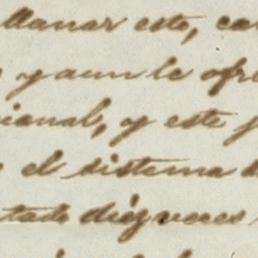 llanar esto, ca
y aun le ofre
cional, y este p
el sistema d
tado diez veces